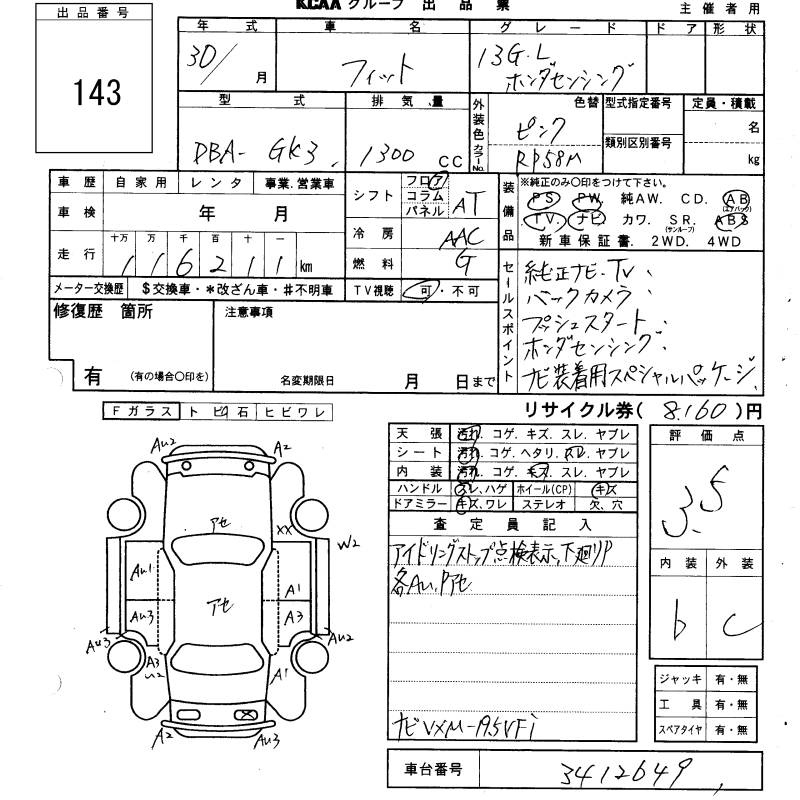 KCAA グループ 出 品 票
主 催 者 用
出 品 番 号
143
年 式
30/ 月
車 名
フィット
グ レ ー ド
13G・L
ホンダセンシング
ド ア
形 状
型 式
DBA- GK3
排 気 量
1300 CC
外装色 カラーNo.
色替
ピンク
RP58M
型式指定番号
類別区別番号
定員・積載
名
kg
車 歴 自 家 用 レ ン タ 事業.営業車
車 検 年 月
走 行 十万 万 千 百 十 一
116211 km
メーター交換歴 $交換車・*改ざん車・#不明車
シフト フロア コラム パネル AT
冷 房 AAC
燃 料 G
TV視聴 可・不可
装備品
※純正のみ〇印をつけて下さい。
PS. PW. 純AW. CD. AB
(エアバック)
TV. ナビ カワ. SR. ABS
(サンルーフ)
新 車 保 証 書. 2WD. 4WD
セールスポイント
純正ナビ・TV、
バックカメラ、
プッシュスタート、
ホンダセンシング、
ナビ装着用スペシャルパッケージ、
修復歴 箇所
有 (有の場合〇印を)
注意事項
名変期限日 月 日まで
リサイクル券( 8,160 )円
Fガラス トビ石 ヒビワレ
天 張 汚れ. コゲ. キズ. スレ. ヤブレ
シート 汚れ. コゲ. ヘタリ. スレ. ヤブレ
内 装 汚れ. コゲ. キズ. スレ. ヤブレ
ハンドル スレ.ハゲ ホイール(CP) キズ
ドアミラー キズ.ワレ ステレオ 欠、穴
査 定 員 記 入
アイドリングストップ点検表示、下廻りP
各Au、Pアセ
ナビVXM-195VFi
評 価 点
3.5
内 装 外 装
b C
ジャッキ 有・無
工 具 有・無
スペアタイヤ 有・無
車台番号 3412649
Au2 A2
アセ XX W2
Au1 A1
アセ
Au3 A3
Au3 Au2
A3
U2 A1
A2 Au3